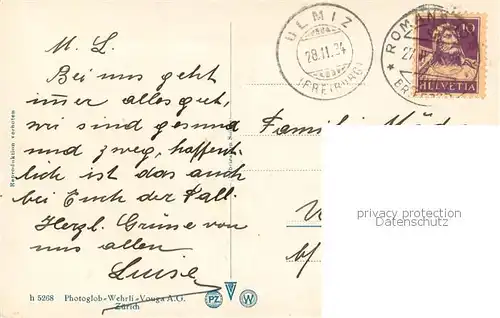 M. L.
Bei uns geht
immer alles gut,
wir sind gesund
und zweg, hoffent-
lich ist das auch
bei Euch der Fall.
Herzl. Grüsse von
uns allen
Luise
h 5268 Photoglob-Wehrli-Vouga A.G.
Zürich
Reproduktion verboten
ULMIZ
28.11.34
(FREIBURG)
* ROMANSH
27
10
HELVETIA
Familie
privacy protection
Datenschutz
b/
PZ
W